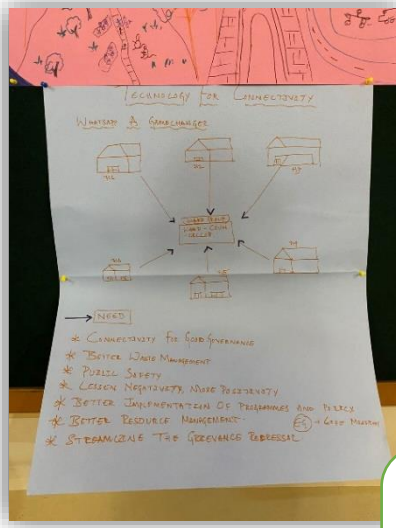 TECHNOLOGY FOR CONNECTIVITY
WHATSAPP A GAMECHANGER
NEED
* CONNECTIVITY FOR GOOD GOVERNANCE
* BETTER WASTE MANAGEMENT
* PUBLIC SAFETY
* LESSEN NEGATIVITY, MORE POSITIVITY
* BETTER IMPLEMENTATION OF PROGRAMMES AND POLICY
* BETTER RESOURCE MANAGEMENT
* STREAMLINE THE GRIEVANCE REDRESSAL